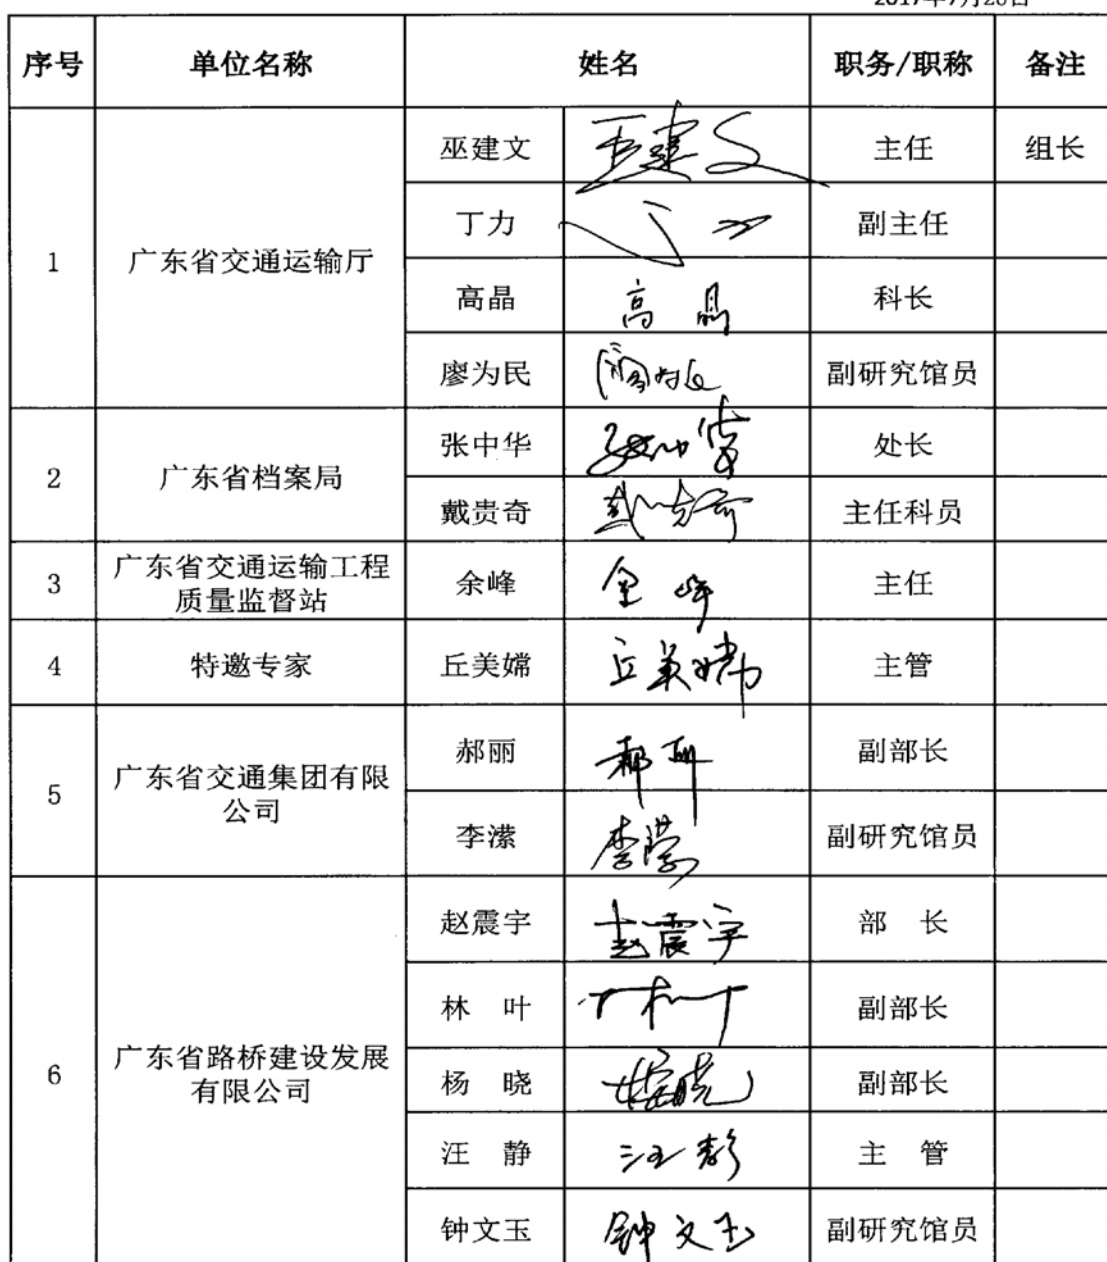 2017年7月20日
序号 单位名称 姓名 职务/职称 备注
1 广东省交通运输厅 巫建文 巫建文 主任 组长
丁力 丁力 副主任
高晶 高晶 科长
廖为民 廖为民 副研究馆员
2 广东省档案局 张中华 张中华 处长
戴贵奇 戴贵奇 主任科员
3 广东省交通运输工程
质量监督站 余峰 余峰 主任
4 特邀专家 丘美嫦 丘美嫦 主管
5 广东省交通集团有限
公司 郝丽 郝丽 副部长
李潆 李潆 副研究馆员
6 广东省路桥建设发展
有限公司 赵震宇 赵震宇 部 长
林 叶 林叶 副部长
杨 晓 杨晓 副部长
汪 静 汪静 主 管
钟文玉 钟文玉 副研究馆员